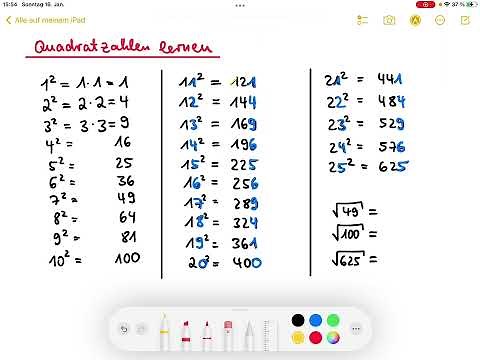 15:54 Sonntag 16. Jan.
37 %
Alle auf meinem iPad
Quadratzahlen lernen
1² = 1 · 1 = 1
2² = 2 · 2 = 4
3² = 3 · 3 = 9
4² 16
5² 25
6² 36
7² 49
8² 64
9² 81
10² 100
11² = 121
12² = 144
13² = 169
14² = 196
15² = 225
16² = 256
17² = 289
18² = 324
19² = 361
20² = 400
21² = 441
22² = 484
23² = 529
24² = 576
25² = 625
√49 =
√100 =
√625 =